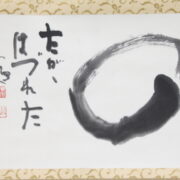 たがが
はづれた